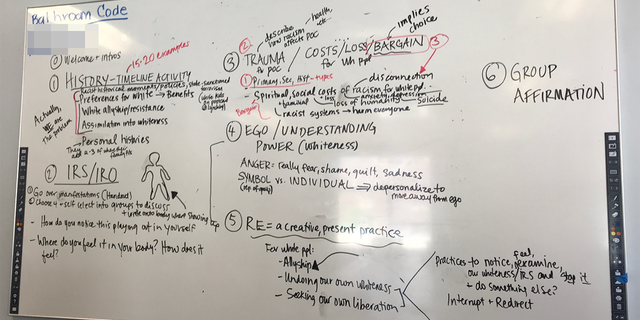 Bathroom Code
⓪ Welcome + intros
15-20 examples
① HISTORY-TIMELINE ACTIVITY
Racist historical moments/policies, state-sanctioned
Preferences for white → Benefits
White allyship/resistance
Assimilation into whiteness
→ Personal histories
Actually, we are the problem
② IRS/IRO
① Go over manifestations (Handout)
② Choose 4 - self select into groups to discuss
+ write onto body where showing up
- How do you notice this playing out in yourself
- Where do you feel it in your body? How does it
feel?
describe how racism affects POC
health, etc.
implies choice
②
③ TRAUMA / COSTS/LOSS/BARGAIN ③
to POC
for wh ppl
① Primary, Sec, Hist - types
disconnection
- Spiritual, social costs of racism for white ppl.
+ familial
loss of humanity
anxiety, depression
Suicide
Bargain
racist systems → harm everyone
④ EGO / UNDERSTANDING
POWER (Whiteness)
ANGER: really fear, shame, guilt, sadness
SYMBOL vs. INDIVIDUAL ⇒ depersonalize to
(rep of group)
move away from ego
⑤ RE = a creative, present practice
For white ppl:
- Allyship
- Undoing our own whiteness
- Seeking our own liberation
Practices to notice, feel, examine,
our whiteness/IRS and stop it
+ do something else?
Interrupt + Redirect
⑥ GROUP
AFFIRMATION